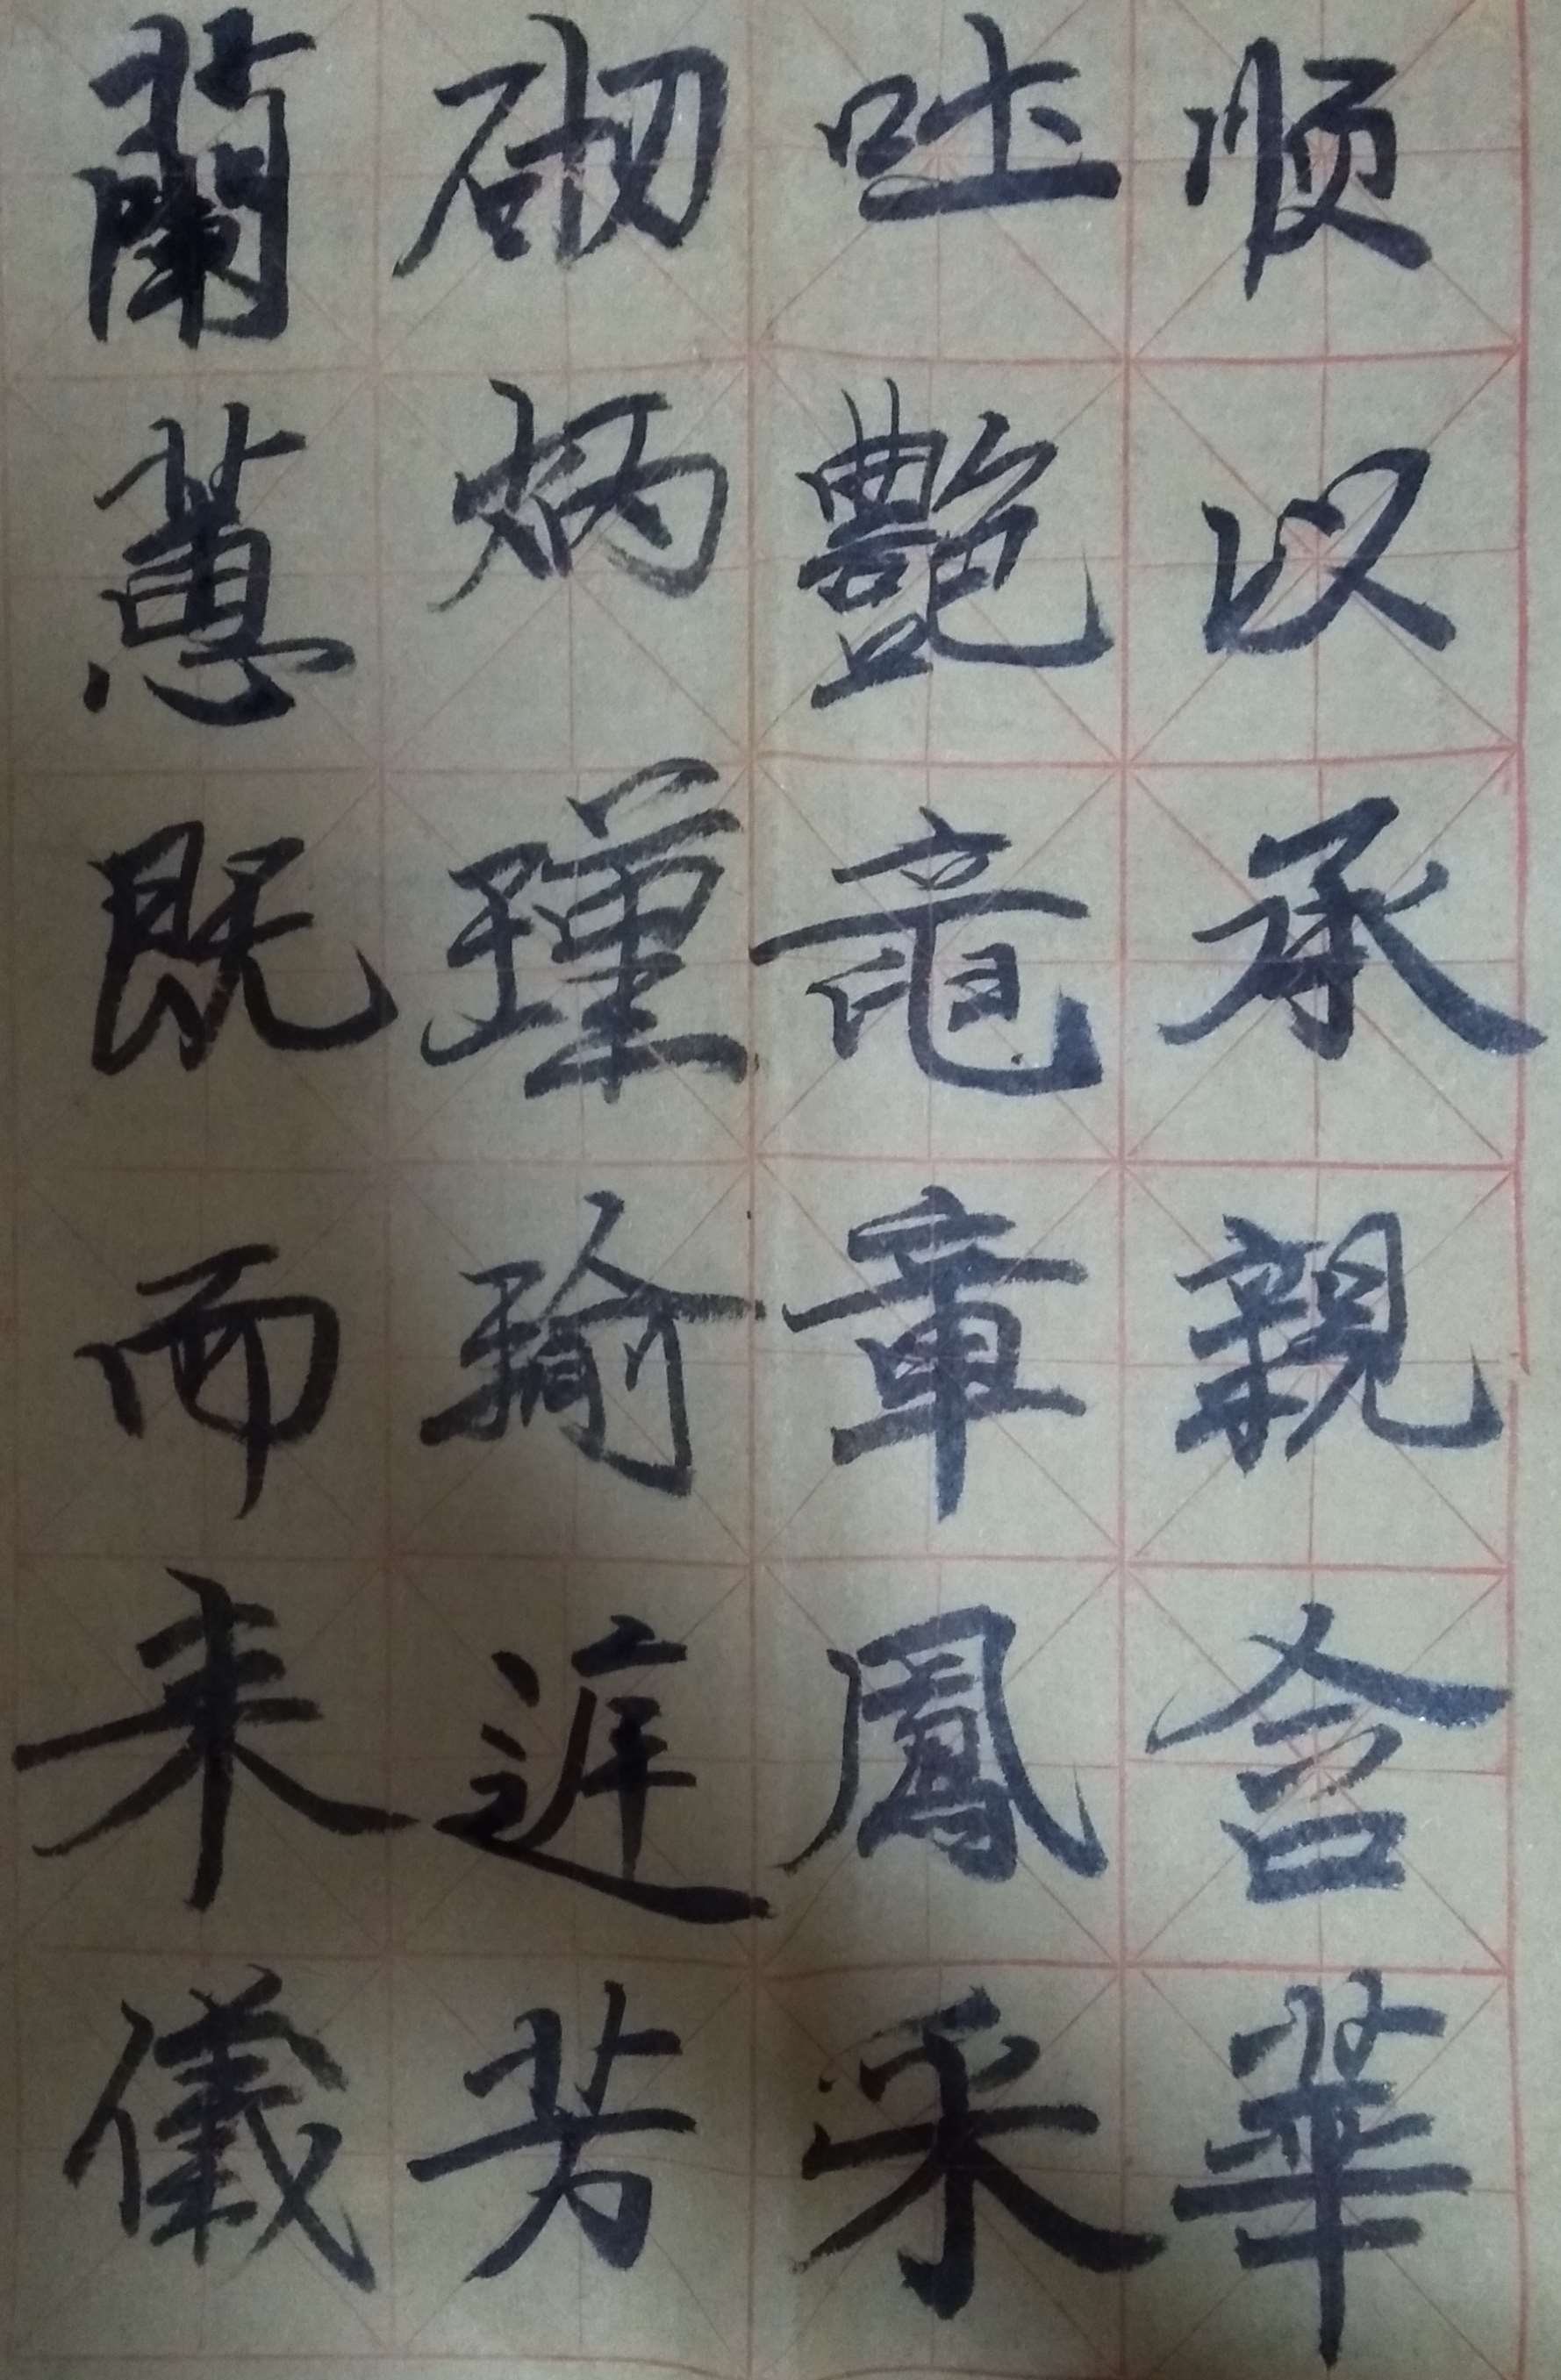 顺以承親含華
吐艷龍章鳳采
砌炳瑾瑜庭芳
蘭蕙既而来儀